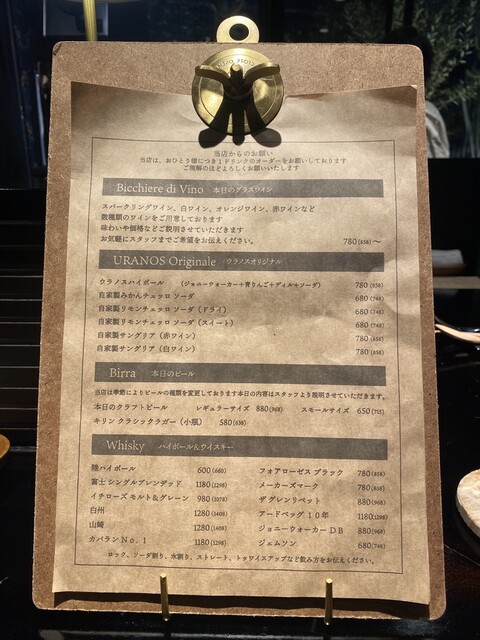 当店からのお願い
当店は、おひとり様につき1ドリンクのオーダーをお願いしております
ご理解のほどよろしくお願いいたします
Bicchiere di Vino 本日のグラスワイン
スパークリングワイン、白ワイン、オレンジワイン、赤ワインなど
数種類のワインをご用意しております
味わいや価格などご説明させていただきます
お気軽にスタッフまでご希望をお伝えください。 780(858)～
URANOS Originale ウラノスオリジナル
ウラノスハイボール （ジョニーウォーカー＋青りんご＋ディル＋ソーダ） 780(858)
自家製みかんチェッロ ソーダ 680(748)
自家製リモンチェッロ ソーダ（ドライ） 680(748)
自家製リモンチェッロ ソーダ（スイート） 680(748)
自家製サングリア（赤ワイン） 780(858)
自家製サングリア（白ワイン） 780(858)
Birra 本日のビール
当店は季節によりビールの種類を変更しております本日の内容はスタッフより説明させていただきます。
本日のクラフトビール レギュラーサイズ 880(968) スモールサイズ 650(715)
キリン クラシックラガー（小瓶） 580(638)
Whisky ハイボール&ウイスキー
陸ハイボール 600(660) フォアローゼス ブラック 780(858)
富士 シングルブレンデッド 1180(1298) メーカーズマーク 780(858)
イチローズ モルト&グレーン 980(1078) ザ グレンリベット 880(968)
白州 1280(1408) アードベッグ 10年 1180(1298)
山崎 1280(1408) ジョニーウォーカー DB 880(968)
カバラン No. 1 1180(1298) ジェムソン 680(748)
ロック、ソーダ割り、水割り、ストレート、トゥワイスアップなど飲み方をお伝えください。